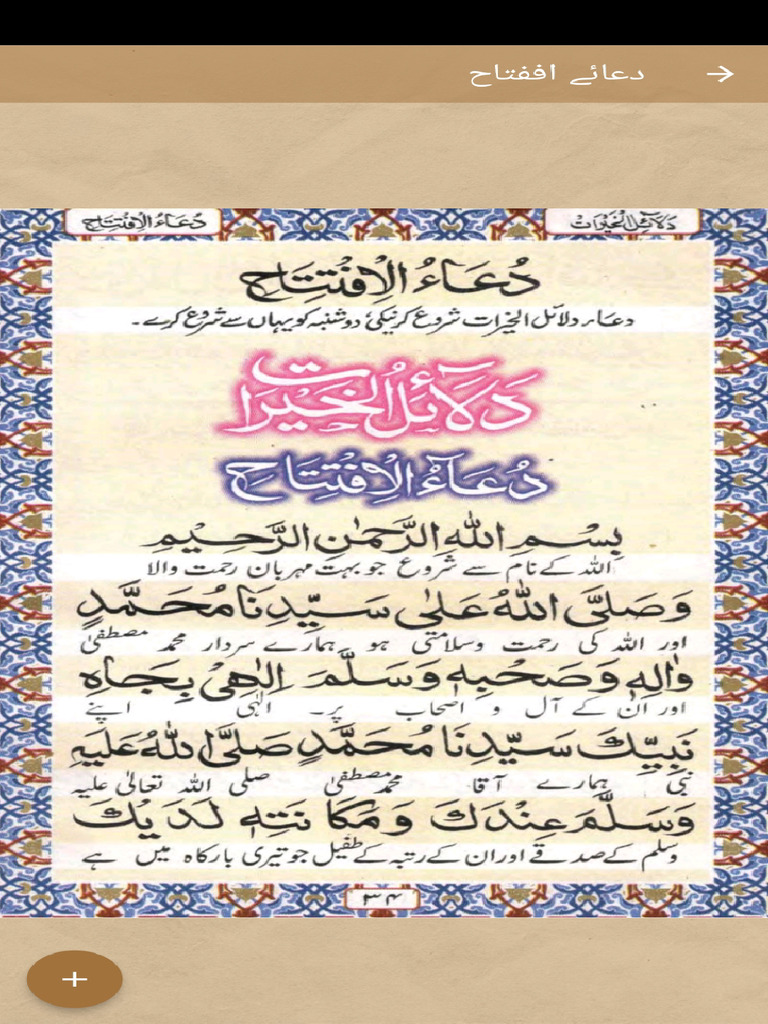 دعائے اففتاح
دَلَائِلُ الْخَيْرَات
دُعَاءُ الْاِفْتِتَاح
دُعَاءُ الْاِفْتِتَاح
دعاء دلائل الخیرات شروع کرنیکی دوشنبہ کو یہاں سے شروع کرے۔
دَلَآئِلُ الْخَيْرَات
دُعَآءُ الْاِفْتِتَاح
بِسْمِ اللهِ الرَّحْمٰنِ الرَّحِيْمِ
اللہ کے نام سے شروع جو بہت مہربان رحمت والا
وَصَلَّى اللهُ عَلٰى سَيِّدِنَا مُحَمَّدٍ
اور اللہ کی رحمت وسلامتی ہو ہمارے سردار محمد مصطفیٰ
وَاٰلِهٖ وَصَحْبِهٖ وَسَلَّمَ اِلٰهِىْ بِجَاهِ
اور ان کے آل و اصحاب پر۔ الٰہی اپنے
نَبِيِّكَ سَيِّدِنَا مُحَمَّدٍ صَلَّى اللهُ عَلَيْهِ
نبی ہمارے آقا محمد مصطفیٰ صلی اللہ تعالیٰ علیہ
وَسَلَّمَ عِنْدَكَ وَمَكَانَتِهٖ لَدَيْكَ
وسلم کے صدقے اور ان کے رتبہ کے طفیل جو تیری بارگاہ میں ہے
٣۴